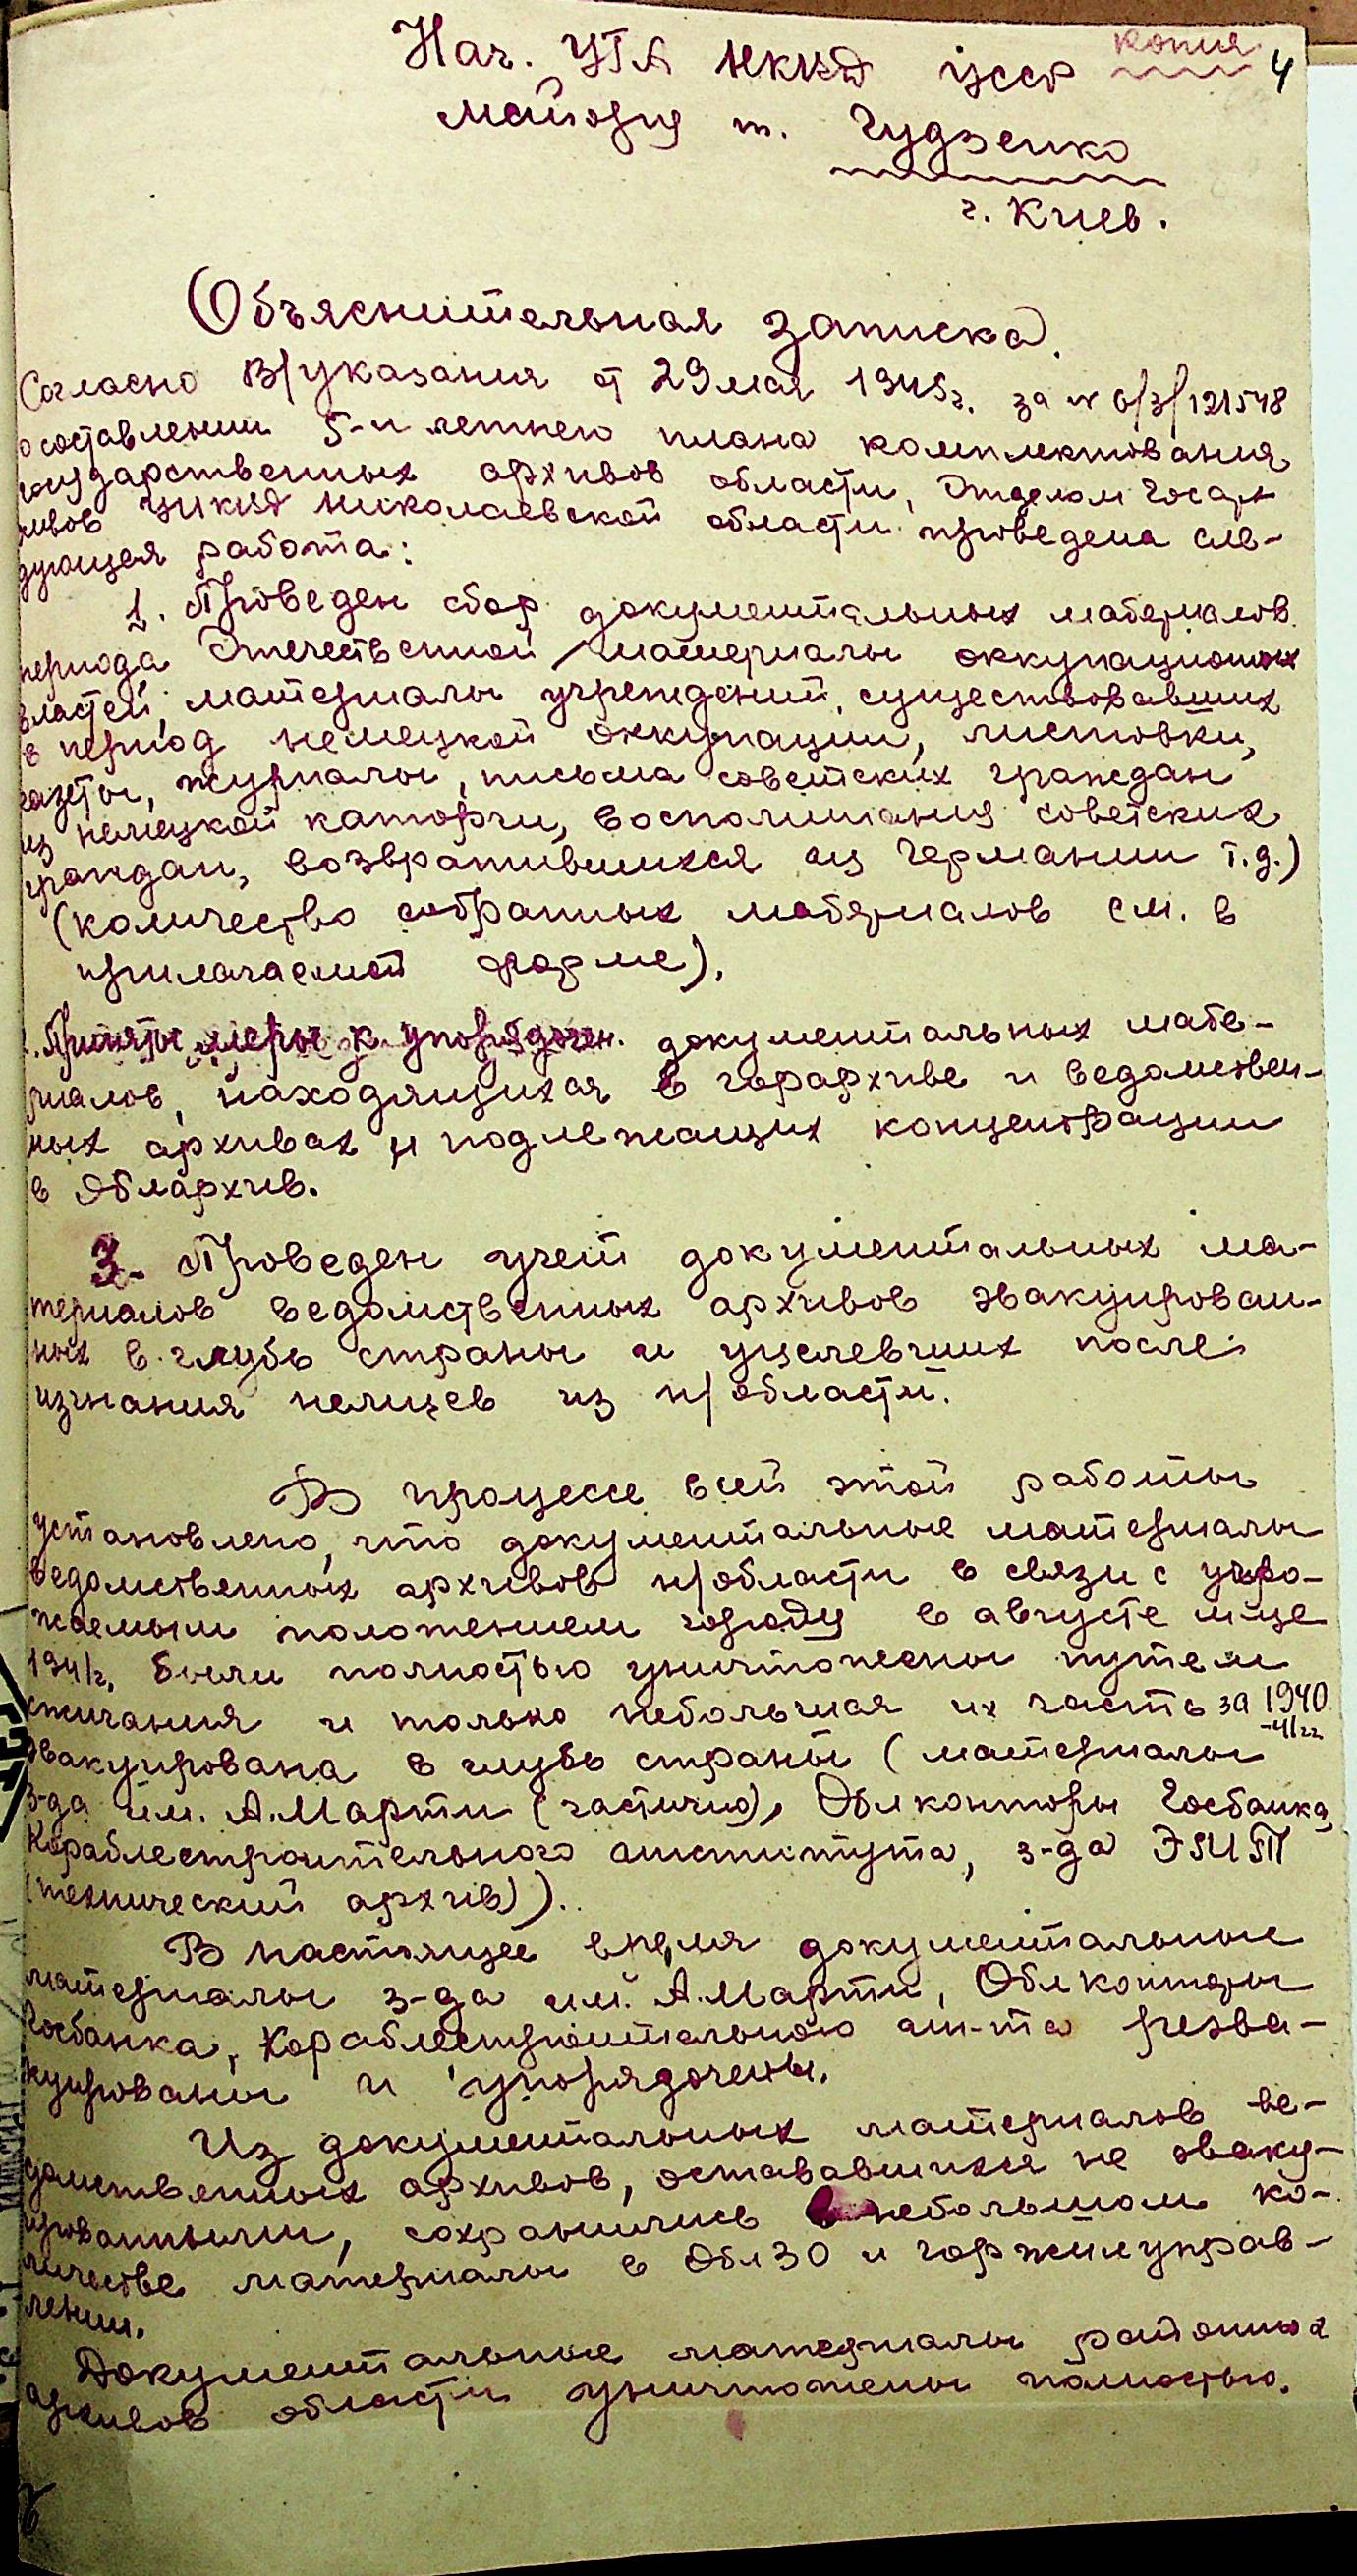 копия 4
Нач. УГА НКВД УССР
майору т. Гудзенко
г. Киев.
Объяснительная записка.
Согласно В/указания от 29 мая 1945г. за № 6/3/121548
о составлении 5-и летнего плана комплектования
государственных архивов области, Отделом Госар-
хивов УНКВД Николаевской области проведена сле-
дующая работа:
1. Проведен сбор документальных материалов
периода Отечественной /материалы оккупационных
властей, материалы учреждений, существовавших
в период немецкой оккупации, листовки,
газеты, журналы, письма советских граждан
из немецкой каторги, воспоминания советских
граждан, возвратившихся из Германии т.д.)
(количество собранных материалов см. в
прилагаемой форме).
Приняты меры к упорядочен. документальных мате-
риалов, находящихся в горархиве и ведомствен-
ных архивах и подлежащих концентрации
в Облархив.
3. Проведен учет документальных ма-
териалов ведомственных архивов эвакуирован-
ных в глубь страны и уцелевших после
изгнания немцев из н/области.
В процессе всей этой работы
установлено, что документальные материалы
ведомственных архивов н/области в связи с угро-
жаемым положением городу в августе м-це
1941г. были полностью уничтожены путем
сжигания и только небольшая их часть за 1940
-41гг
эвакуирована в глубь страны (материалы
З-да им. А.Марти (частично), Облконторы Госбанка,
Кораблестроительного института, з-да
(технический архив)).
В настоящее время документальные
материалы з-да им. А.Марти, Облконторы
Госбанка, Кораблестроительного ин-та реэва-
куированы и упорядочены.
Из документальных материалов ве-
домственных архивов, остававшихся не эваку-
ированными, сохранились в небольшом ко-
личестве материалы в ОблЗО и горжилуправ-
лении.
Документальные материалы районных
архивов области уничтожены полностью.